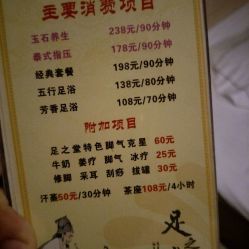 主要消费项目
玉石养生 238元/90分钟
泰式指压 178元/90分钟
经典套餐 198元/90分钟
五行足浴 138元/80分钟
芳香足浴 108元/70分钟
附加项目
足之堂特色脚气克星 60元
牛奶 姜疗 脚气 冰疗 25元
修脚 采耳 刮痧 拔罐 30元
汗蒸50元/30分钟 茶座108元/4小时
足之